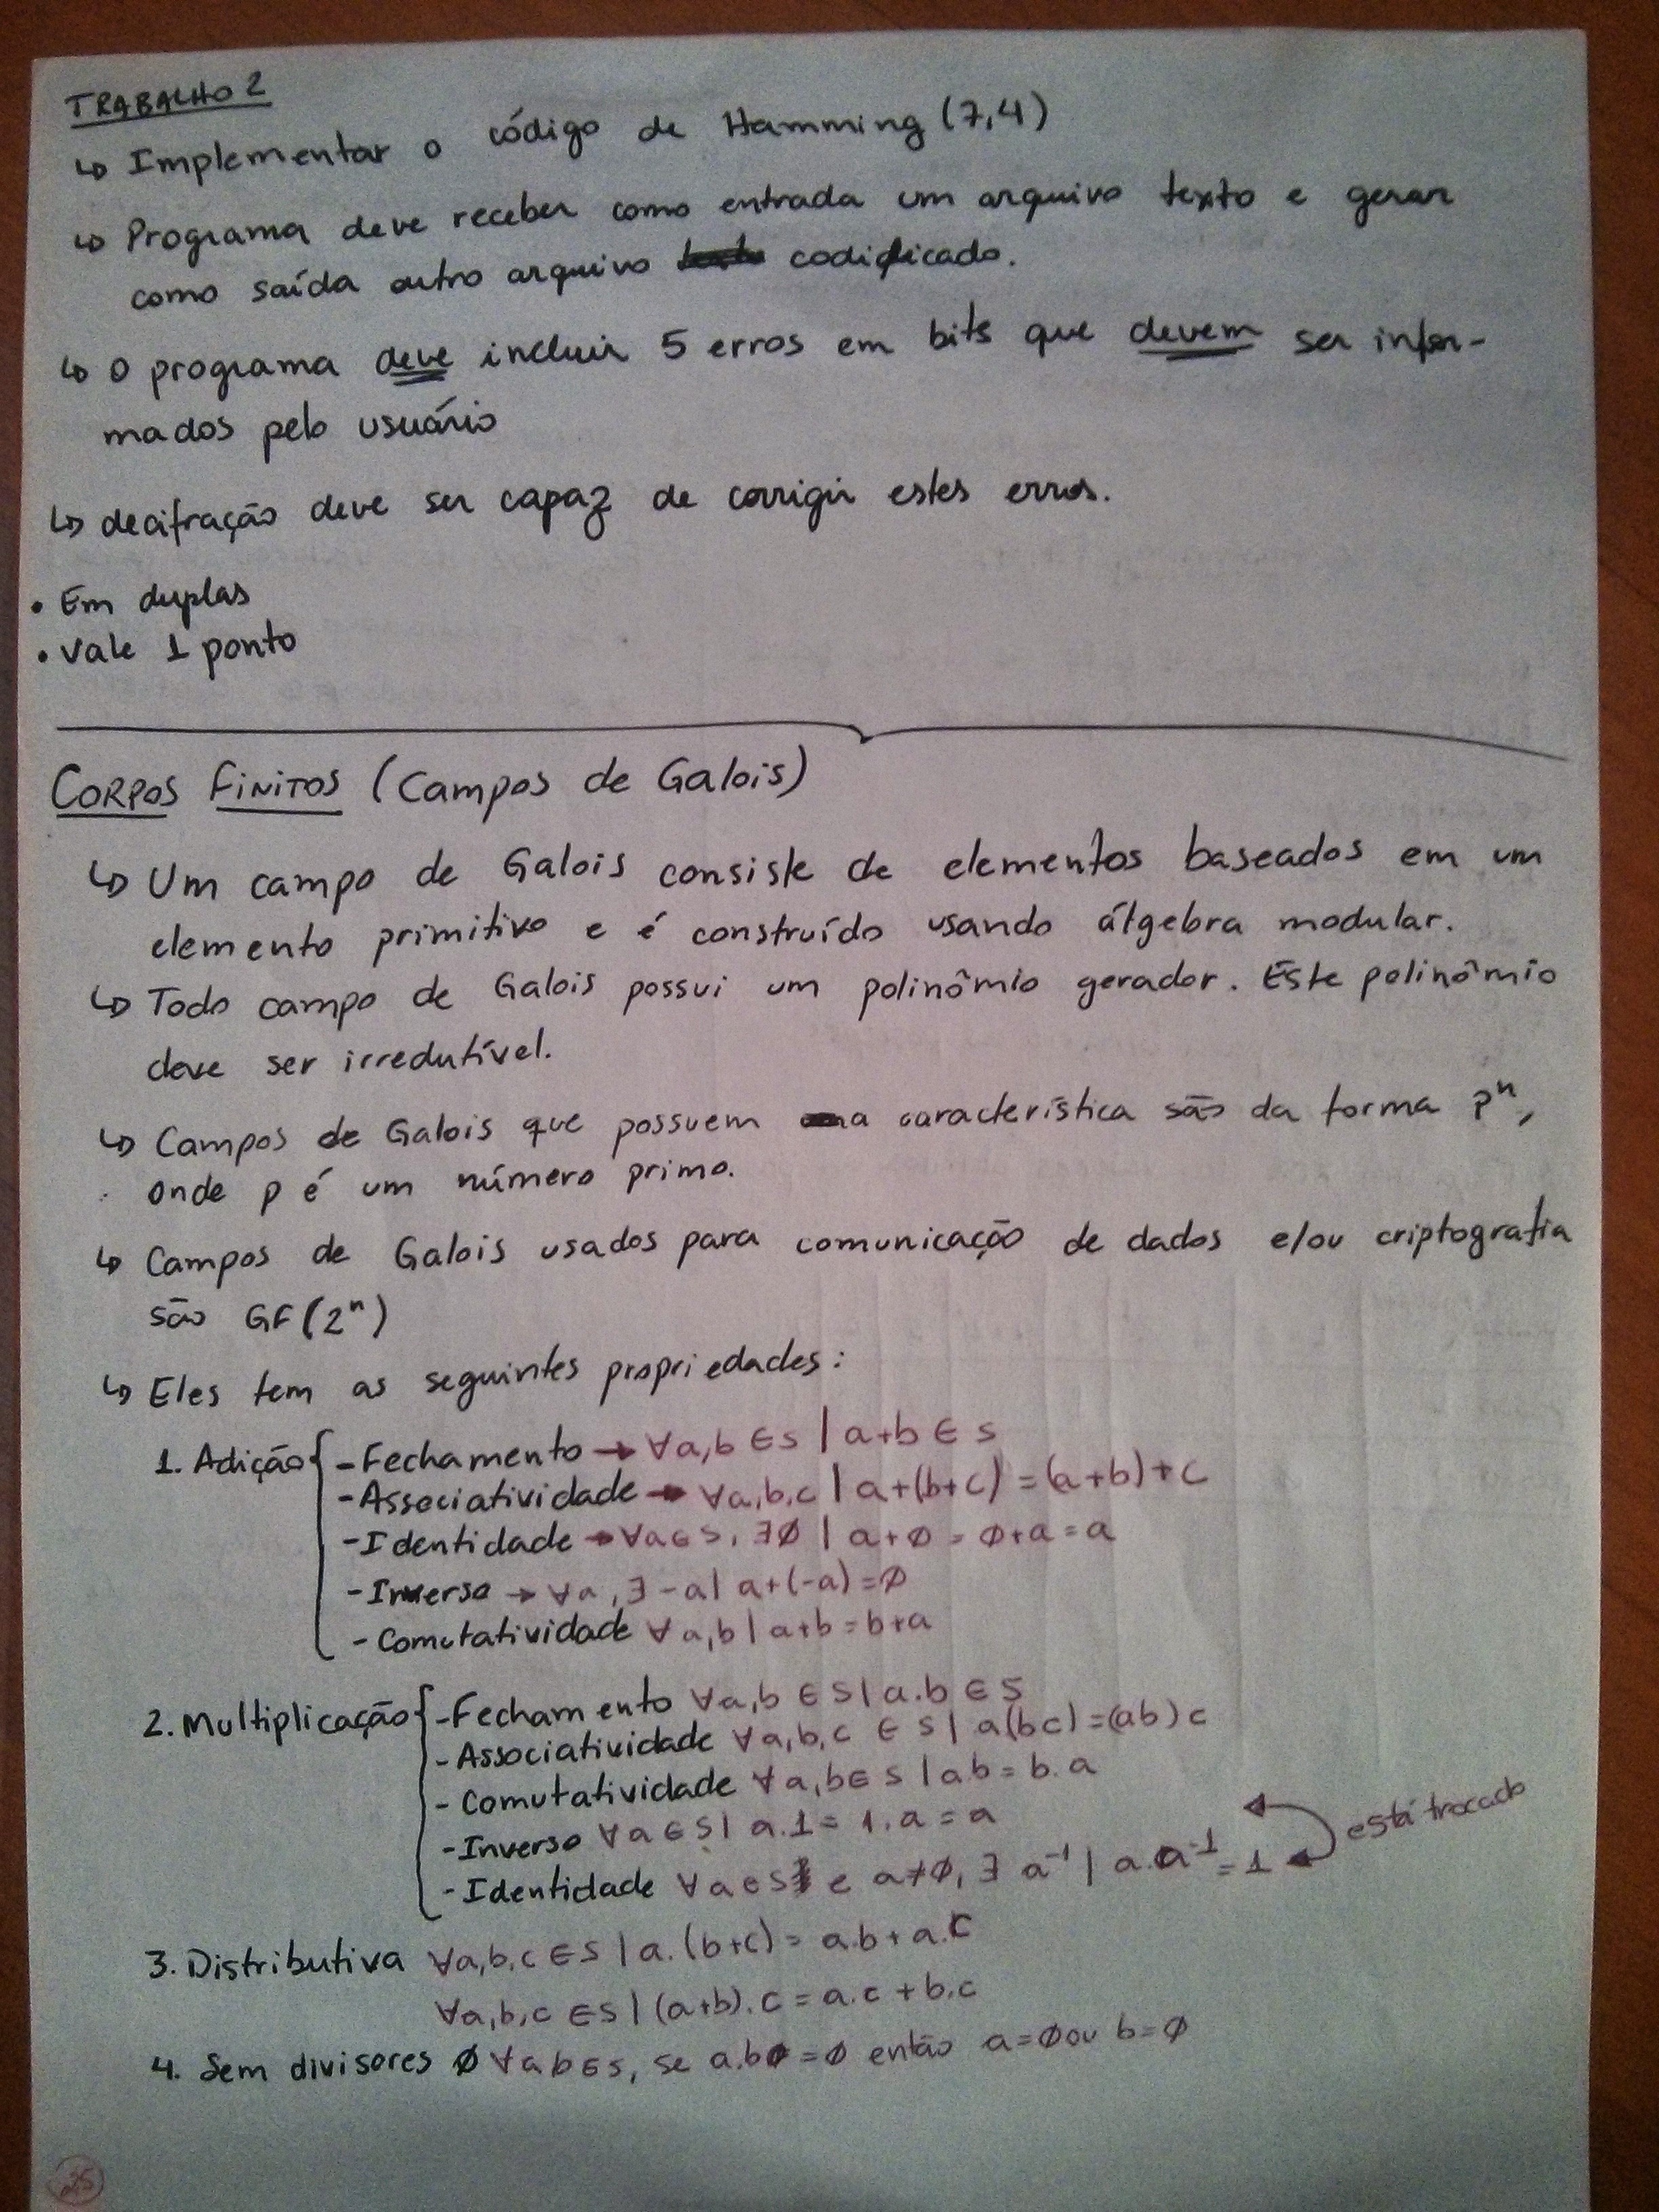 TRABALHO 2
↳ Implementar o código de Hamming (7,4)
↳ Programa deve receber como entrada um arquivo texto e gerar
como saída outro arquivo codificado.
↳ O programa deve incluir 5 erros em bits que devem ser infor-
mados pelo usuário
↳ decifração deve ser capaz de corrigir estes erros.
• Em duplas
• Vale 1 ponto
CORPOS FINITOS (Campos de Galois)
↳ Um campo de Galois consiste de elementos baseados em um
elemento primitivo e é construído usando álgebra modular.
↳ Todo campo de Galois possui um polinômio gerador. Este polinômio
deve ser irredutível.
↳ Campos de Galois que possuem a característica são da forma pⁿ,
onde p é um número primo.
↳ Campos de Galois usados para comunicação de dados e/ou criptografia
são GF(2ⁿ)
↳ Eles tem as seguintes propriedades:
1. Adição { - Fechamento → ∀a,b ∈ S | a+b ∈ S
- Associatividade → ∀a,b,c | a+(b+c) = (a+b)+c
- Identidade → ∀a ∈ S, ∃∅ | a+∅ = ∅+a = a
- Inverso → ∀a, ∃ -a | a+(-a) = ∅
- Comutatividade ∀a,b | a+b = b+a
2. Multiplicação { - Fechamento ∀a,b ∈ S | a.b ∈ S
- Associatividade ∀a,b,c ∈ S | a(bc) = (ab)c
- Comutatividade ∀a,b ∈ S | a.b = b.a
- Inverso ∀a ∈ S | a.1 = 1.a = a
- Identidade ∀a ∈ S e a≠∅, ∃ a⁻¹ | a.a⁻¹ = 1
está trocado
3. Distributiva ∀a,b,c ∈ S | a.(b+c) = a.b + a.c
∀a,b,c ∈ S | (a+b).c = a.c + b.c
4. Sem divisores ∅ ∀a b ∈ S, se a.b = ∅ então a=∅ ou b=∅